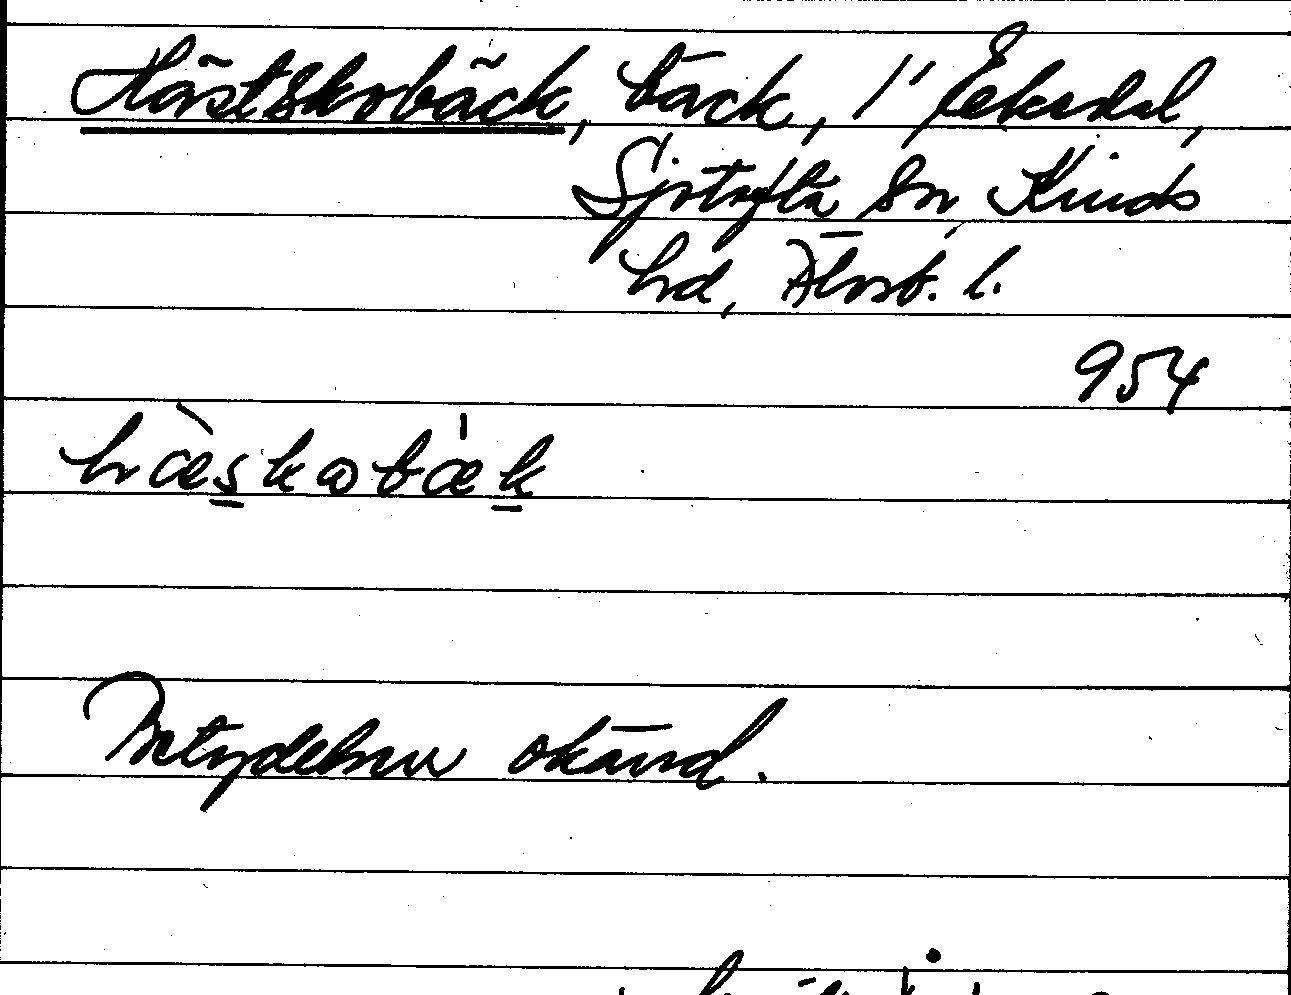 Hästskobäck, bäck, 1" Ekedal,
Sjötofta sn, Kinds
hd, Älvsb. l.
954
hæ̀skωbæ̍k
Betydelsen okänd.